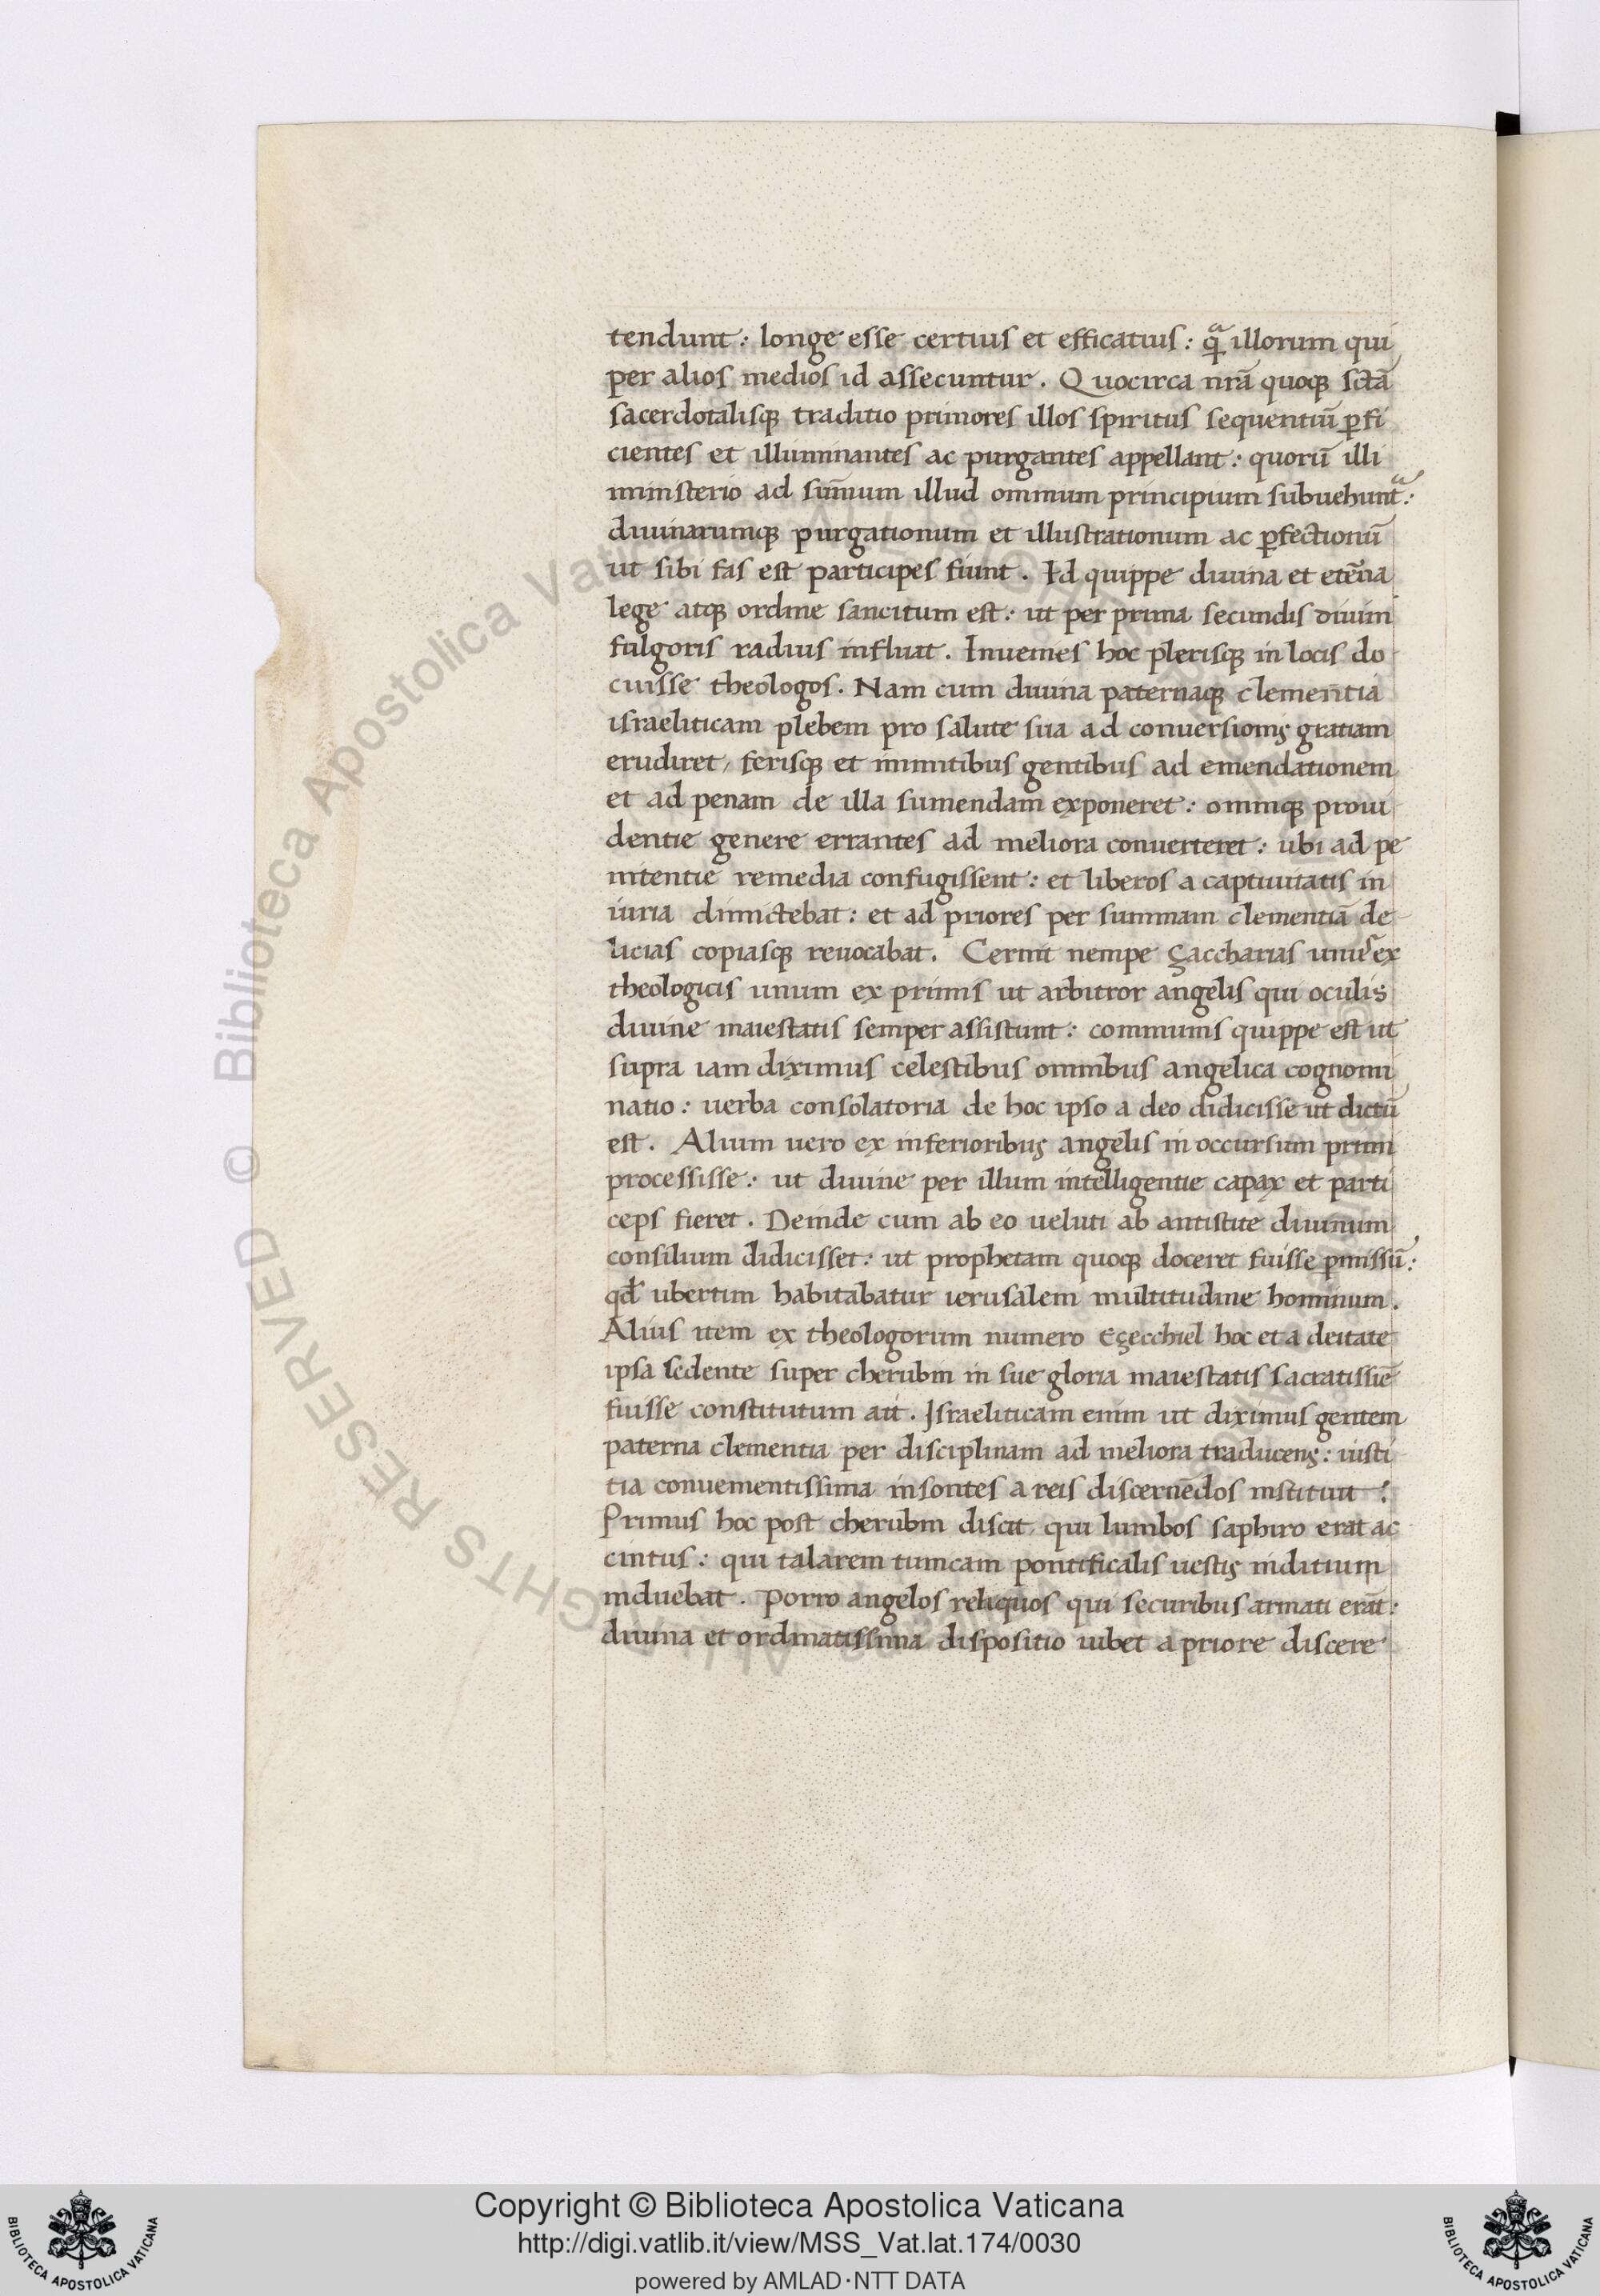 tendunt: longe esse certius et efficatius: qᷓ illorum qui
per alios medios id assecuntur. Quocirca nr̄a quoqꝫ sctā
sacerdotalisqꝫ traditio primores illos spiritus sequentiū ꝑfi
cientes et illuminantes ac purgantes appellant: quorū illi
ministerio ad sum̄um illud omnium principium subuehuntᷓ:
diuinarumqꝫ purgationum et illustrationum ac ꝑfectionū
ut sibi fas est participes fiunt. Id quippe diuina et etēna
lege atqꝫ ordine sancitum est: ut per prima secundis diuini
fulgoris radius influat. Inuenies hoc plerisqꝫ in locis do
cuisse theologos. Nam cum diuina paternaqꝫ clementia
israeliticam plebem pro salute sua ad conuersionis gratiam
erudiret, ferisqꝫ et inmitibus gentibus ad emendationem
et ad penam de illa sumendam exponeret: omniqꝫ proui
dentie genere errantes ad meliora conuerteret: ubi ad pe
nitentie remedia confugissent: et liberos a captiuitatis in
iuria dimictebat: et ad priores per summam clementiā de
licias copiasqꝫ reuocabat. Cernit nempe çaccharias unus ex
theologicis unum ex primis ut arbitror angelis qui oculis
diuine maiestatis semper assistunt: communis quippe est ut
supra iam diximus celestibus omnibus angelica cognomi
natio: uerba consolatoria de hoc ipso a deo didicisse ut dictū
est. Alium uero ex inferioribus angelis in occursum primi
processisse: ut diuine per illum intelligentie capax et parti
ceps fieret. Deinde cum ab eo ueluti ab antistite diuinum
consilium didicisset: ut prophetam quoqꝫ doceret fuisse ꝑmissū:
qđ ubertim habitabatur ierusalem multitudine hominum.
Alius item ex theologorum numero Eçecchiel hoc et a deitate
ipsa sedente super cherubin in sue gloria maiestatis sacratissiē
fuisse constitutum ait. Israeliticam enim ut diximus gentem
paterna clementia per disciplinam ad meliora traducens: iusti
tia conuenientissima insontes a reis discernēdos instituit:
Primus hoc post cherubin discit, qui lumbos saphiro erat ac
cintus: qui talarem tunicam pontificalis uestis inditium
induebat. Porro angelos reliquos qui securibus armati erāt:
diuina et ordinatissima dispositio iubet a priore discere
Copyright © Biblioteca Apostolica Vaticana
http://digi.vatlib.it/view/MSS_Vat.lat.174/0030
powered by AMLAD·NTT DATA
BIBLIOTECA APOSTOLICA VATICANA
BIBLIOTECA APOSTOLICA VATICANA